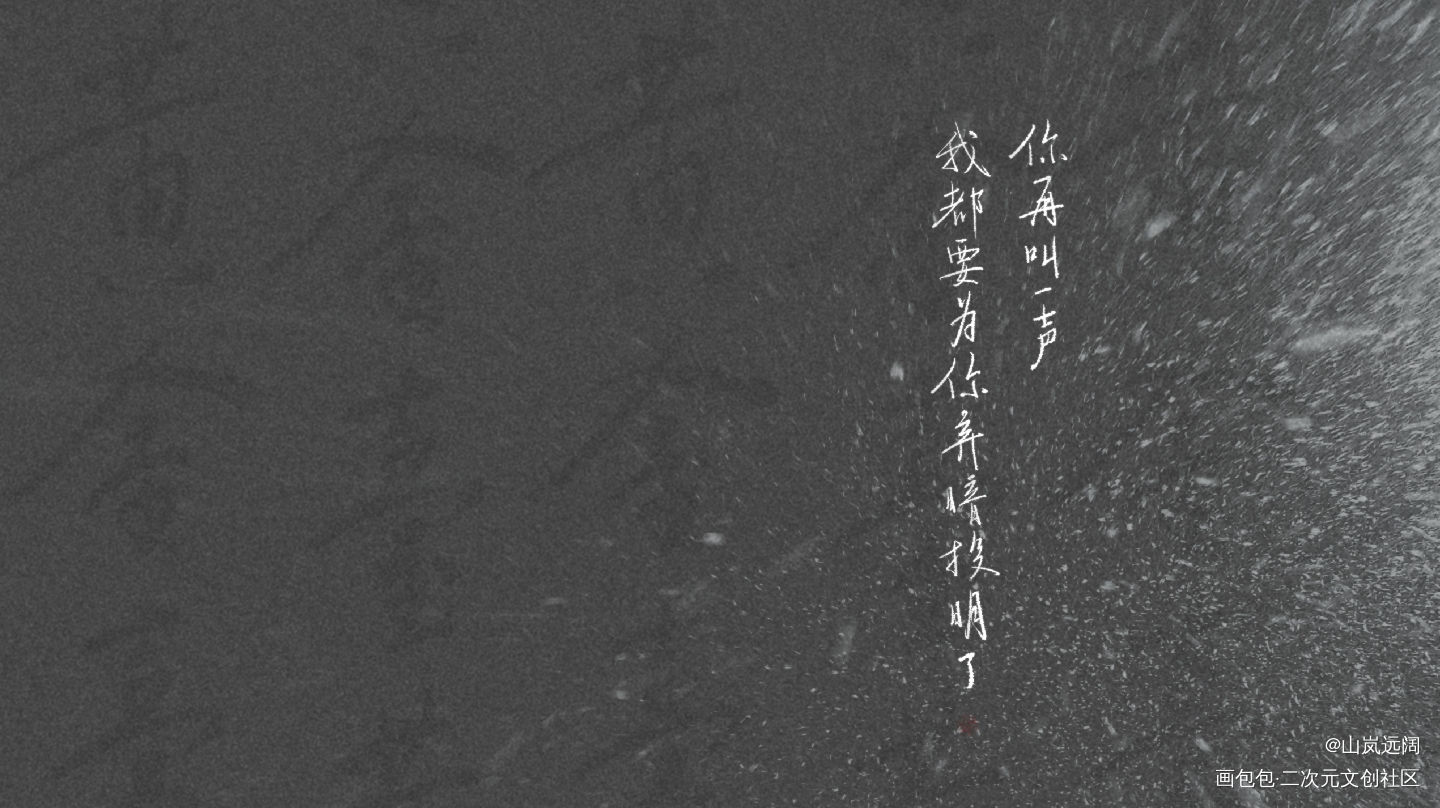 你再叫一声
我都要为你弃暗投明了
@山岚远阔
画包包·二次元文创社区